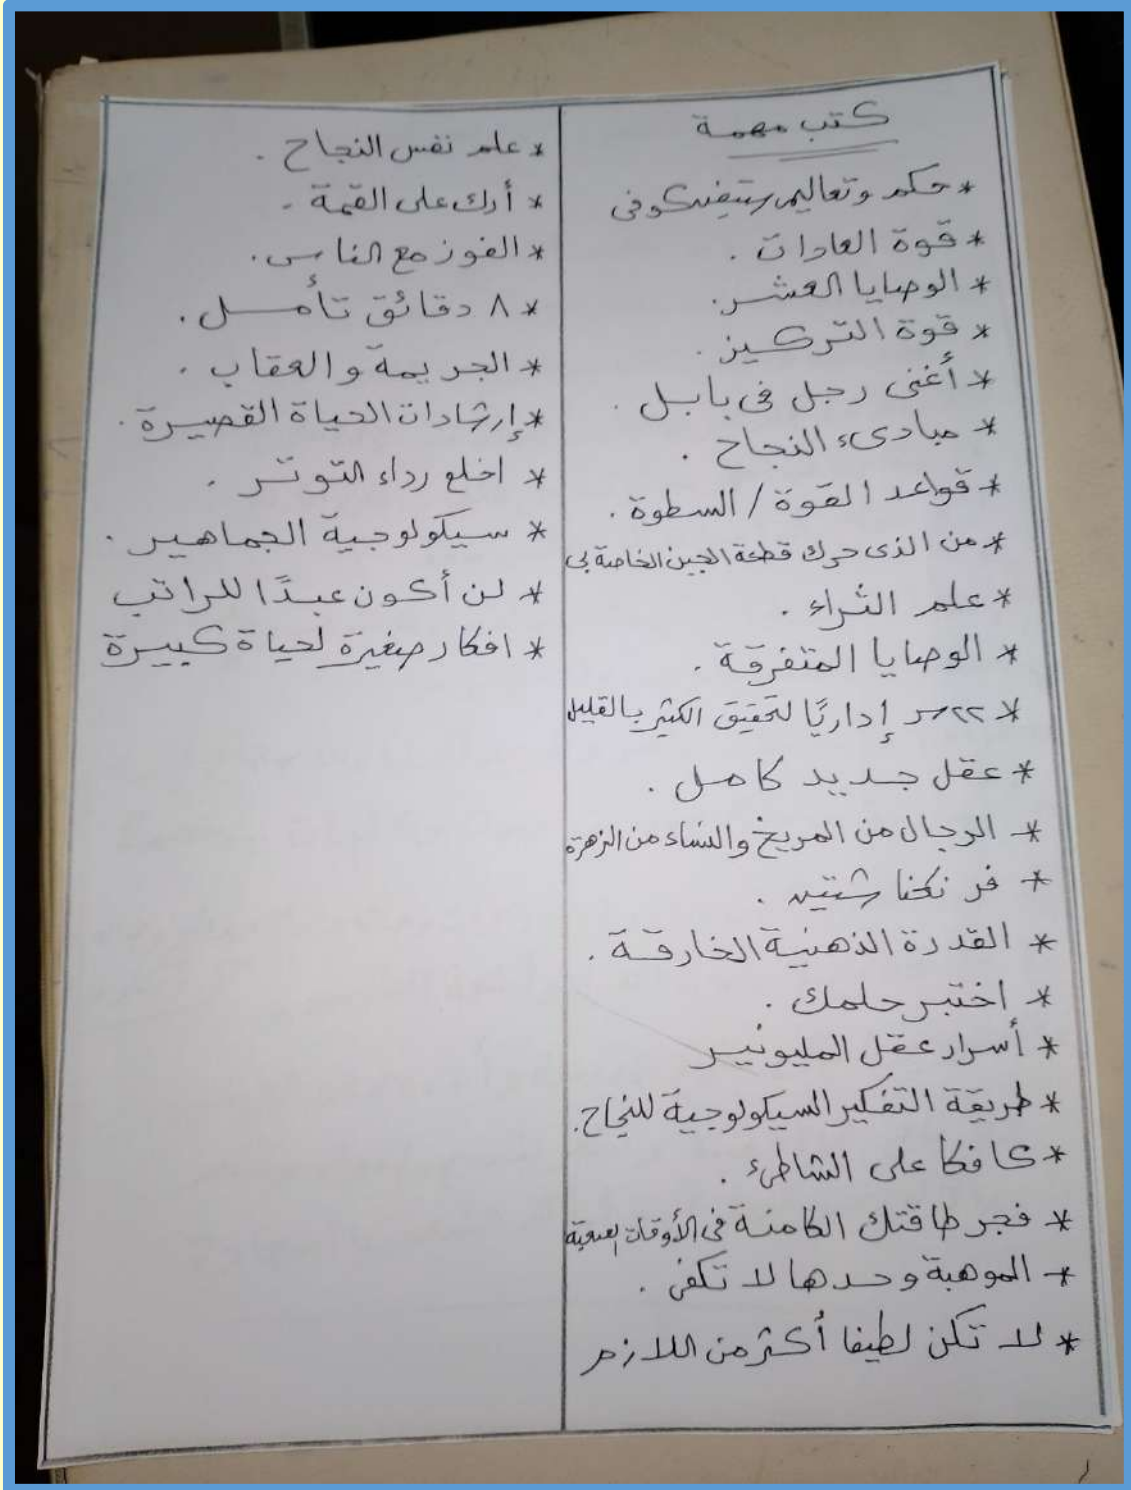 كتب مهمة
* حكم وتعاليم ستيفن كوفى
* قوة العادات .
* الوصايا العشر .
* قوة التركيز .
* أغنى رجل فى بابل .
* مبادىء النجاح .
* قواعد القوة / السطوة .
* من الذى حرك قطعة الجبن الخاصة بى
* علم الثراء .
* الوصايا المتفرقة .
* ٢٢ سر إداريًا لتحقيق الكثير بالقليل
* عقل جديد كامل .
* الرجال من المريخ والنساء من الزهرة
* فرنكنا شتين .
* القدرة الذهنية الخارقة .
* اختبر حلمك .
* أسرار عقل المليونير
* طريقة التفكير السيكولوجية للنجاح .
* كافكا على الشاطىء .
* فجر طاقتك الكامنة فى الأوقات الصعبة
* الموهبة وحدها لا تكفى .
* لا تكن لطيفا أكثر من اللازم
* علم نفس النجاح .
* أراك على القمة .
* الفوز مع الناس .
* ٨ دقائق تأمل .
* الجريمة والعقاب .
* إرشادات الحياة القصيرة .
* اخلع رداء التوتر .
* سيكولوجية الجماهير .
* لن أكون عبدًا للراتب
* افكار صغيرة لحياة كبيرة